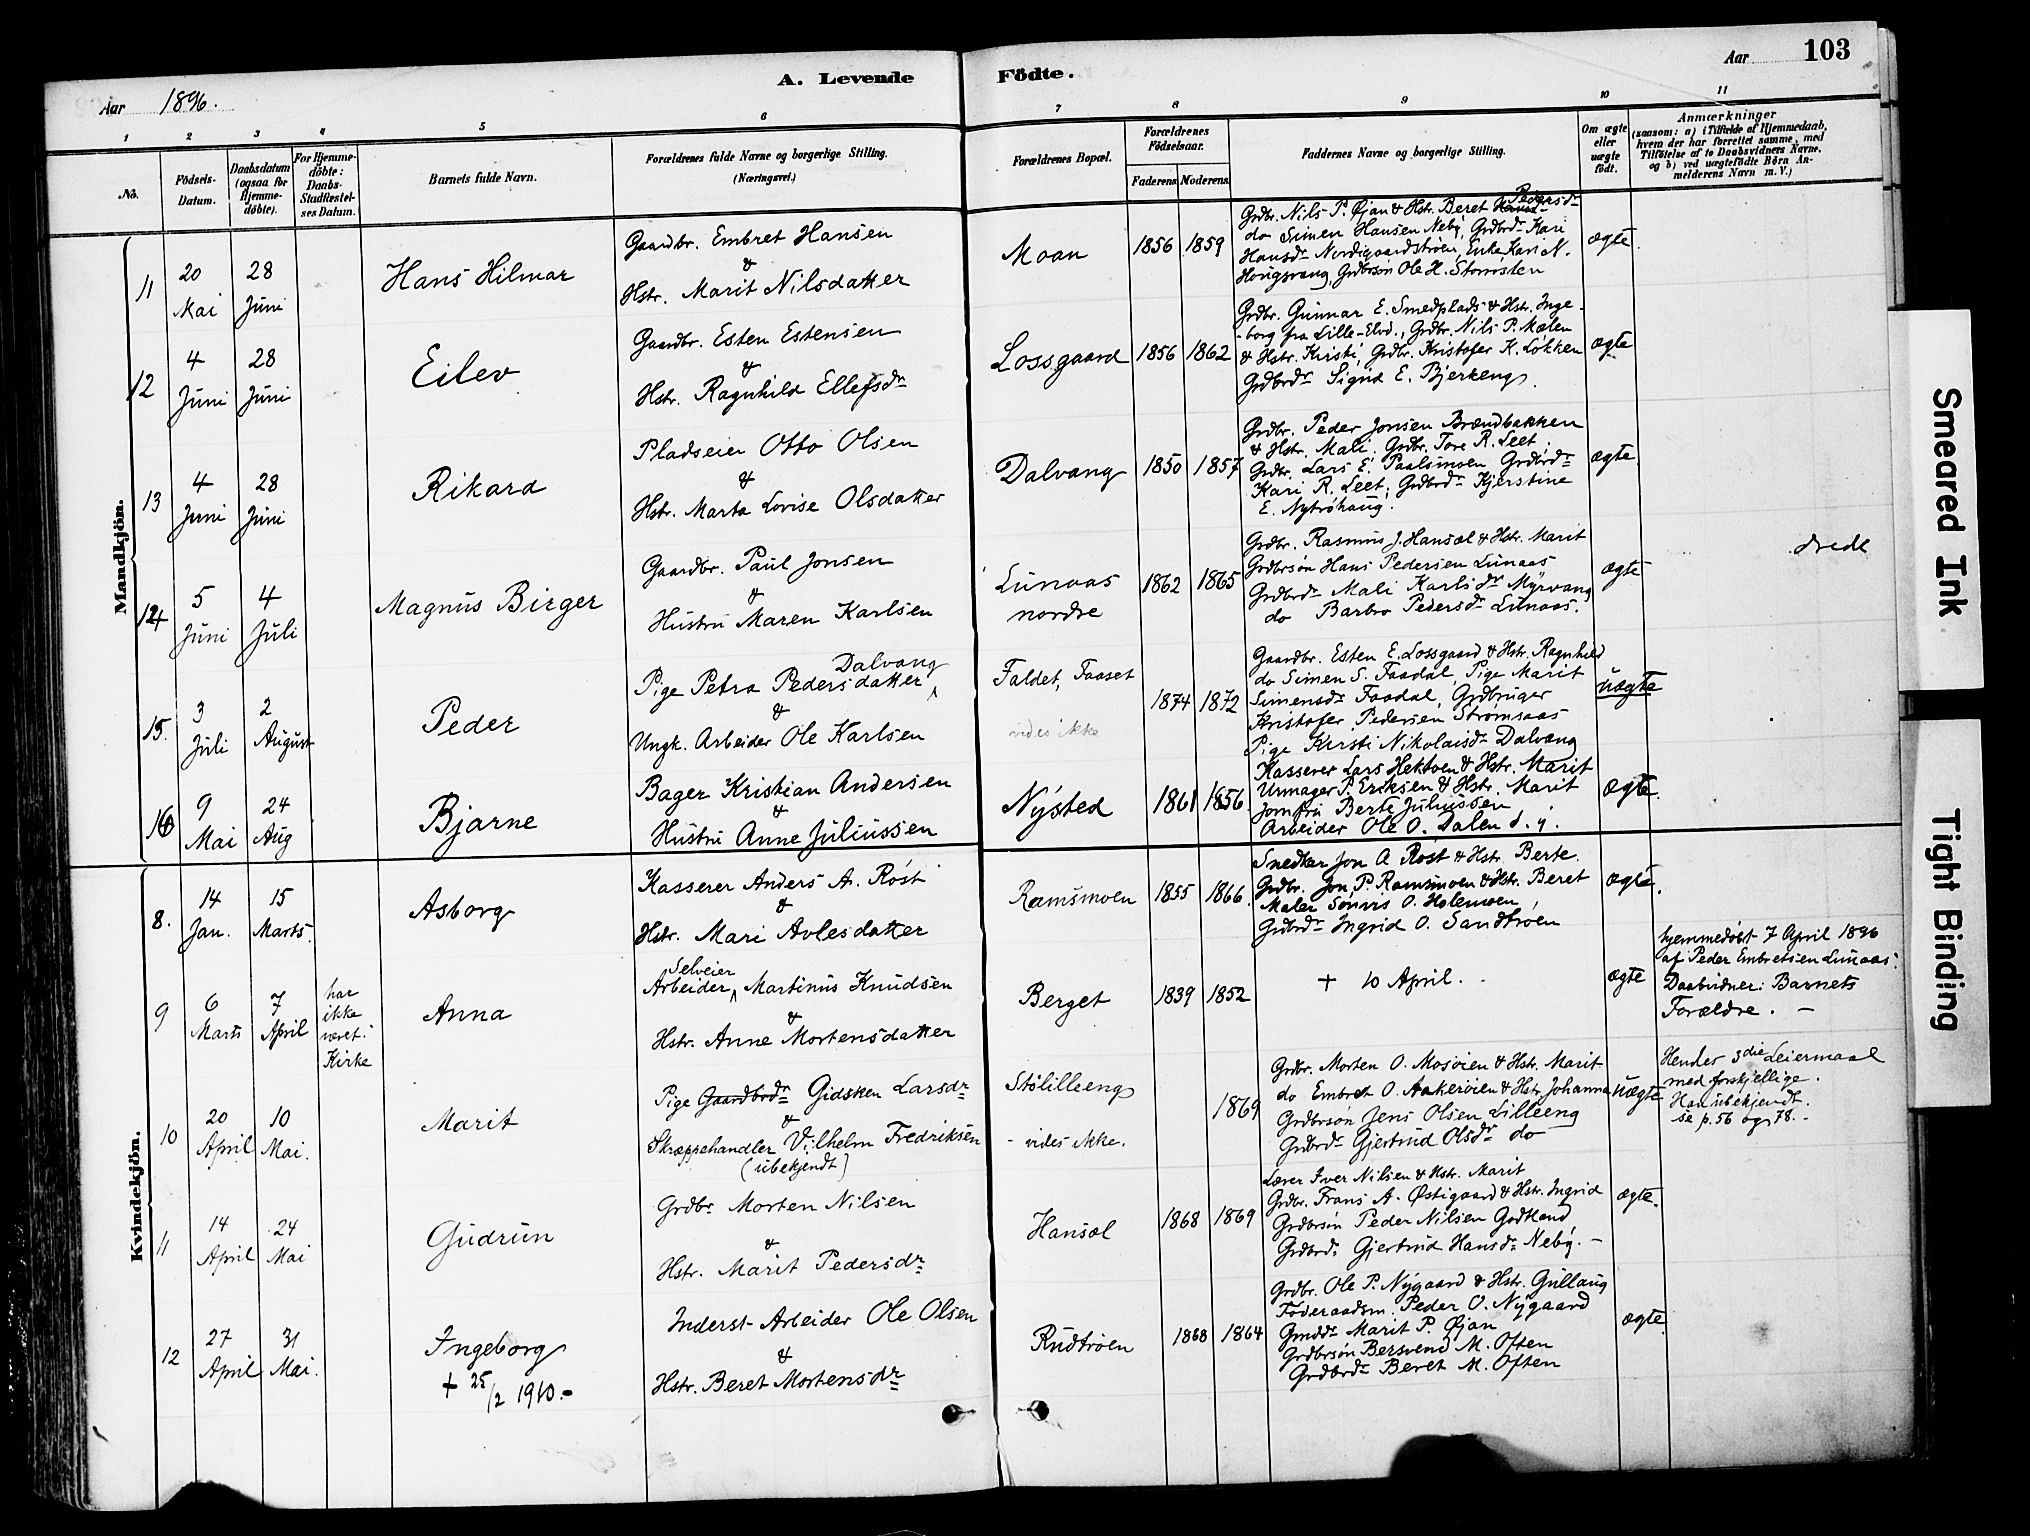 Aar 1896.
A. Levende Födte.
Aar 103
1 2 3 4 5 6 7 8 9 10 11
No.
Födsels-Datum.
Daabsdatum (ogsaa for Hjemme-döbte).
For Hjemme-döbte: Daabs-Stadfæstel-ses Datum.
Barnets fulde Navn.
Forældrenes fulde Navne og borgerlige Stilling. (Næringsvei.)
Forældrenes Bopæl.
Forældrenes Födselsaar.
Faderens. Moderens.
Faddernes Navne og borgerlige Stilling.
Om ægte eller uægte födt.
Anmærkninger
(saasom: a) i Tilfælde af Hjemmedaab, hvem der har forrettet samme, med Tilföielse af to Daabsvidners Navne, og b) ved uægtefödte Börn An-melderens Navn m. V.)
Mandkjön.
11
20 Mai
28 Juni
Hans Hilmar
Gaardbr. Embret Hansen
&
Hstr. Marit Nilsdatter
Moan
1856 1859
Grdbr. Nils P. Øjan & Hstr. Beret Pedersdr
do Simen Hansen Neby, Grdbrdr Kari
Hansdr Nordigaardstrøen, Enke Kari N.
Grdbrsön Ole H. Stormsten
ægte.
12
4 Juni
28 Juni
Eilev
Gaardbr. Esten Estensen
&
Hstr. Ragnhild Ellefsdr
Lossgaard
1856 1862
Grdbr. Gunnar E. Smedplads & Hstr. Inge-
-borg fra Lille-Elvd., Grdbr. Nils P. Mælen
& Hstr. Kirsti, Grdbr. Kristofer K. Løkken
Grdbrdr Sigrid E. Bjerkeng.
ægte
13
4 Juni
28 Juni
Rikard
Pladseier Otto Olsen
&
Hstr. Marta Lovise Olsdatter
Dalvang
1850 1857
Grdbr. Peder Jonsen Brændbakken
& Hstr. Mali, Grdbr. Tore R. Leet
Grdbr. Lars E. Paalsmoen Grdbrdr
Kari R. Leet, Grdbrdr Kjerstine
E. Nytrøhaug.
ægte
14
5 Juni
4 Juli
Magnus Birger
Gaardbr. Paul Jonsen
&
Hustru Maren Karlsen
Lunaas
nordre
1862 1865
Grdbr. Rasmus J. Hansæl & Hstr. Marit
Grdbrsön Hans Pedersen Lunaas
Grdbrdr Mali Karlsdr Myrvang
do Barbro Pedersdr Lunaas.
ægte
15.
3 Juli
2 August
Peder
Dalvang
Pige Petra Pedersdatter
&
Ungk. Arbeider Ole Karlsen
Faldet, Faaset
vides ikke
1874 1872
Gaardbr. Esten E. Lossgaard & Hstr. Ragnhild
do Simen S. Faadal, Pige Marit
Simensdr Faadal, Grdbruger
Kristofer Pedersen Strømsaas
Pige Kirsti Nikolaisdr Dalvang
uægte
16
9 Mai
24 Aug
Bjarne
Bager Kristian Andersen
&
Hustru Anne Juliussen
Nysted
1861 1856.
Kasserer Lars Hektoen & Hstr. Marit
Urmager P. Eriksen & Hstr. Marit
Jomfru Berte Juliussen
Arbeider Ole O. Dalen d. y.
ægte.
Kvindekjön.
8.
14 Jan.
15 Marts.
Asborg
Kasserer Anders A. Røst
&
Hstr. Mari Avlesdatter
Ramsmoen
1855 1866.
Snedker Jon A Røst & Hstr. Berte.
Grdbr. Jon P. Ramsmoen & Hstr. Beret
Maler O. Holemoen
Grdbrdr Ingrid O. Sandtrøen
ægte.
9
6 Marts
7 April
har ikke været i Kirke
Anna
Selveier
Arbeider, Martinus Knudsen
&
Hstr. Anne Mortensdatter
Berget
1839 1852
+ 10 April.
ægte
hjemmedøbt 7 April 1896
af Peder Embretsen Lunaas.
Daabvidner: Barnets
Forældre. —
10
20 April
10 Mai.
Marit
Pige Gaardbrdr Gidsken Larsdr
&
Skræppehandler Vilhelm Fredriksen
(ubekjendt)
Stølilleeng
- vides ikke.
1869
Grdbr. Morten O. Mosøien & Hstr. Marit
do Embret O. Aakerøien & Hstr. Johanna
Grdbrsön Jens Olsen Lilleeng
Grdbrdr Gjertrud Olsdr do
uægte
Hendes 3die Leiermaal
med forskjellige.
Han ubekjendt.
se p. 56 og 78. -
11
14 April
24 Mai
Gudrun
Grdbr. Morten Nilsen
&
Hstr. Marit Pedersdr
Hansæl
1868 1869
Lærer Iver Nilsen & Hstr. Marit
Grdbr. Frans A. Østigaard & Hstr. Ingrid
Grdbrsön Peder Nilsen Godtland
Grdbrdr Gjertrud Hansdr Neby. -
ægte.
12
27 April
31 Mai.
Ingeborg
+ 25/2 1910.-
Inderst Arbeider Ole Olsen
&
Hstr. Beret Mortensdr
Rudtrøen
1868 1864
Grdbr. Ole P. Nygaard & Hstr. Gullaug
Føderaadsm. Peder O. Nygaard
Marit P. Øjan
Grdbrsön Bersvend M. Often
Grdbrdr Beret M. Often
ægte.
Smeared Ink
Tight Binding